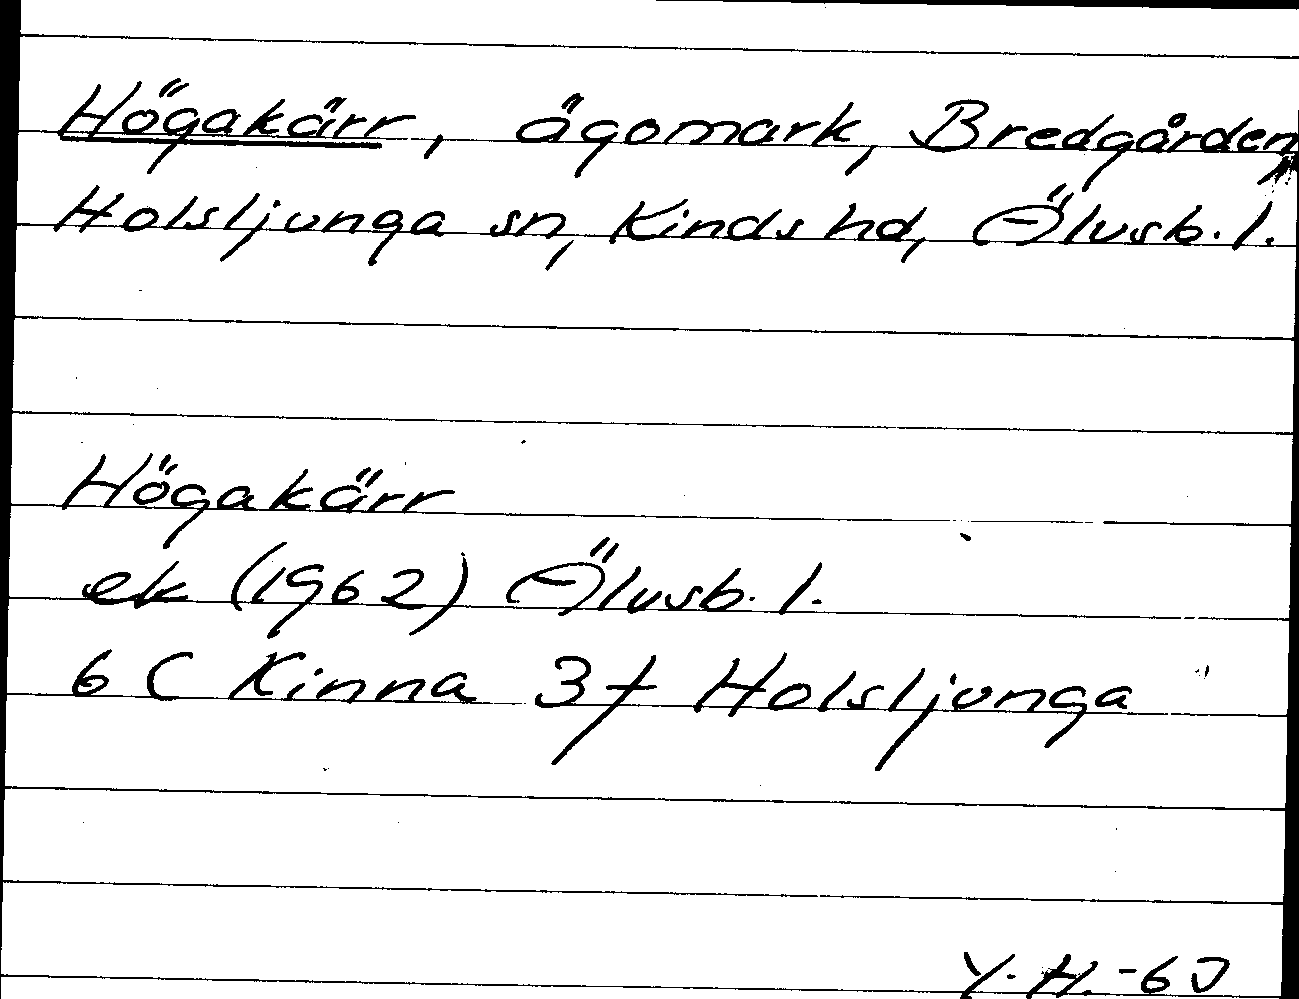 Högakärr, ägomark, Bredgården,
Holsljunga sn, Kinds hd, Älvsb. l.
Högakärr
ek (1962) Älvsb. l.
6 C Kinna 3f Holsljunga
Y. H. -60